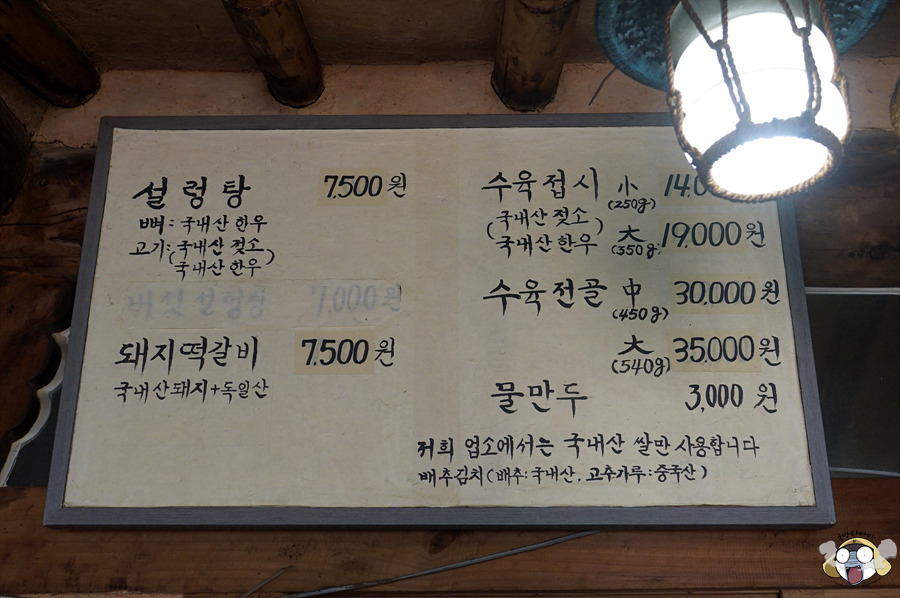 설렁탕 7,500원
뼈: 국내산 한우
고기: (국내산 젖소
국내산 한우)
버섯설렁탕 7,000원
돼지떡갈비 7,500원
국내산돼지+독일산
수육접시 小 14,0
(250g)
(국내산 젖소
국내산 한우) 大 19,000원
(350g)
수육전골 中 30,000원
(450g)
大 35,000원
(540g)
물만두 3,000원
저희 업소에서는 국내산 쌀만 사용합니다
배추김치(배추:국내산, 고추가루:중국산)